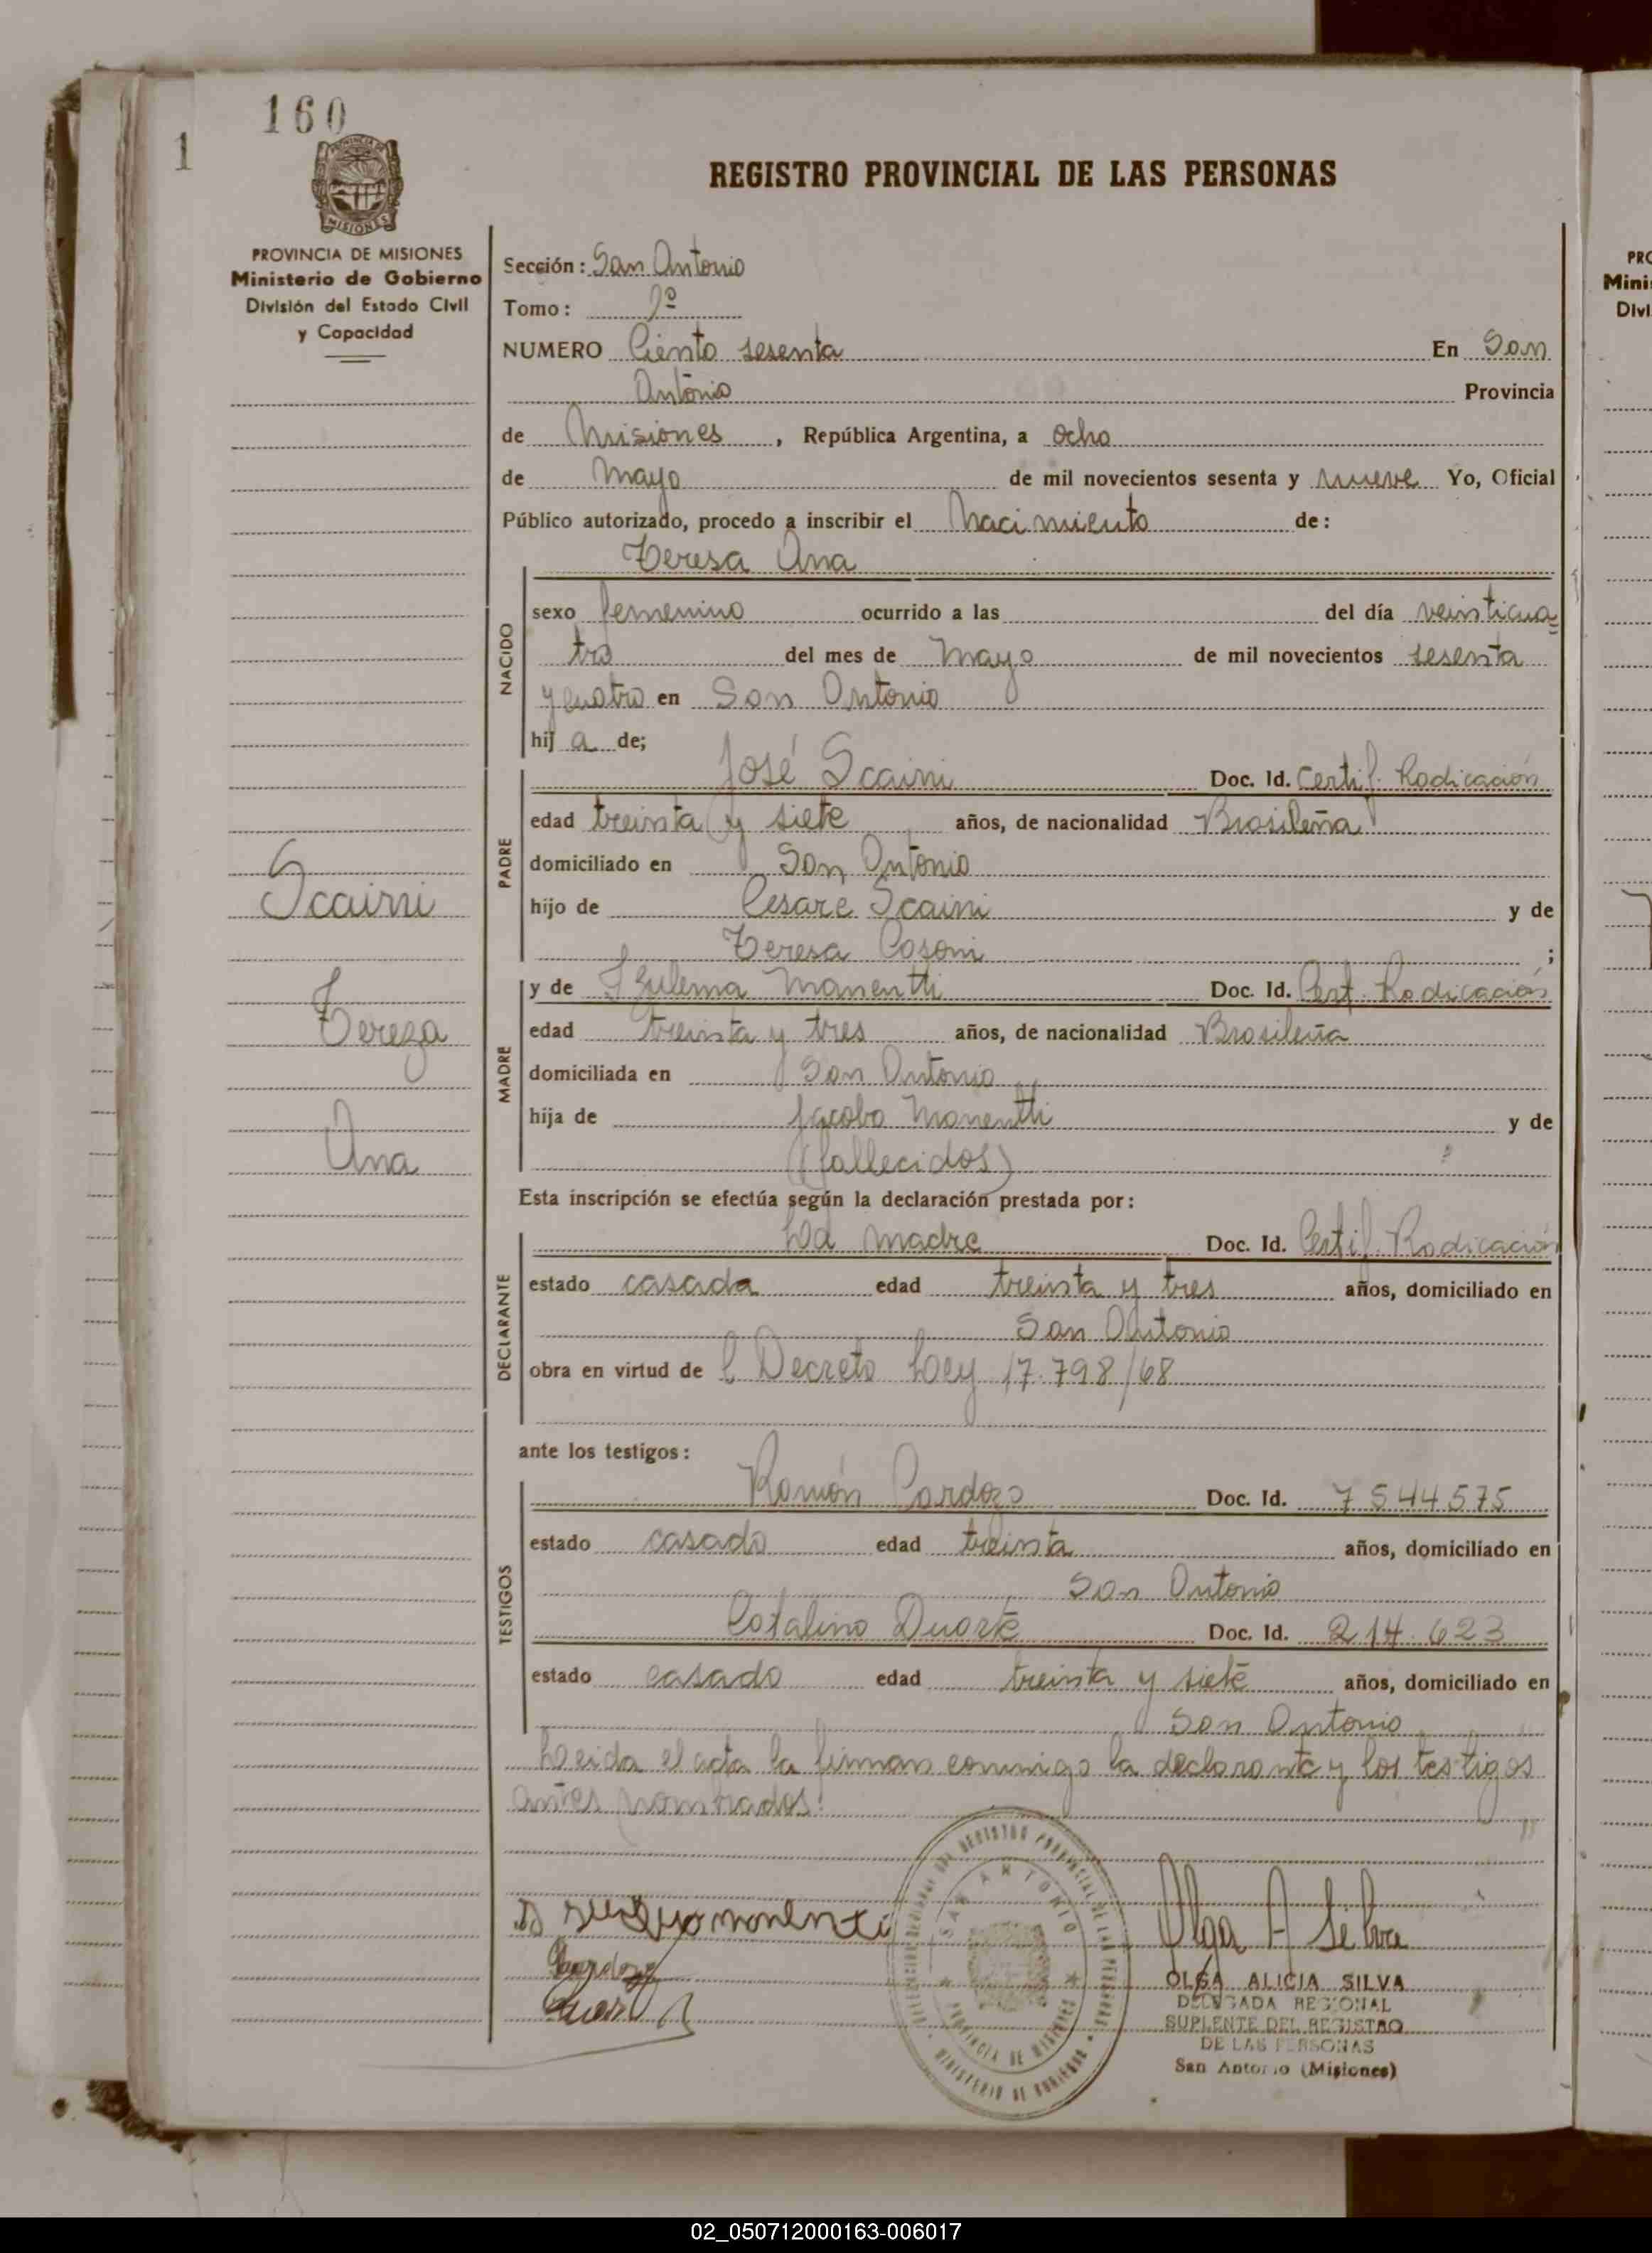 160
1
PROVINCIA DE MISIONES
Ministerio de Gobierno
División del Estado Civil
y Capacidad
REGISTRO PROVINCIAL DE LAS PERSONAS
Sección: San Antonio
Tomo:
NUMERO Ciento sesenta En San
Antonio Provincia
de Misiones, República Argentina, a ocho
de Mayo de mil novecientos sesenta y nueve Yo, Oficial
Público autorizado, procedo a inscribir el Nacimiento de:
Teresa Ana
NACIDO
sexo femenino ocurrido a las del día veinticua=
tro del mes de Mayo de mil novecientos sesenta
y cuatro en San Antonio
hij a de;
PADRE
José Scaini Doc. Id. Certif. Radicación
edad treinta y siete años, de nacionalidad Brasileña
domiciliado en San Antonio
hijo de Cesare Scaini y de
Teresa Cosoni ;
Scaini
Tereza
Ana
MADRE
y de Zulema Manentti Doc. Id. Cert. Radicación
edad treinta y tres años, de nacionalidad Brasileña
domiciliada en San Antonio
hija de Jacobo Manentti y de
(fallecidos)
Esta inscripción se efectúa según la declaración prestada por:
DECLARANTE
La madre Doc. Id. Certif. Radicación
estado casada edad treinta y tres años, domiciliado en
San Antonio
obra en virtud de l Decreto Ley 17.798/68
ante los testigos:
TESTIGOS
Ramón Cardozo Doc. Id. 7544575
estado casado edad treinta años, domiciliado en
San Antonio
Catalino Duarte Doc. Id. 214.623
estado casado edad treinta y siete años, domiciliado en
San Antonio
Leida el acta la firman conmigo la declarante y los testigos
antes nombrados.
manenti
Cardozo
Olga A Silva
OLGA ALICIA SILVA
DELEGADA REGIONAL
SUPLENTE DEL REGISTRO
DE LAS PERSONAS
San Antonio (Misiones)
SAN ANTONIO
PROVINCIA DE MISIONES
MINISTERIO DE GOBIERNO
02_050712000163-006017